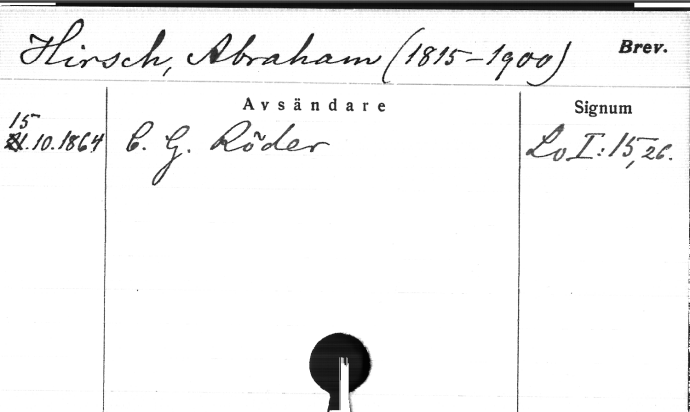 Hirsch, Abraham (1815-1900) Brev.
Avsändare Signum
15
21.10.1864 C. G. Röder Lo I:15,26.